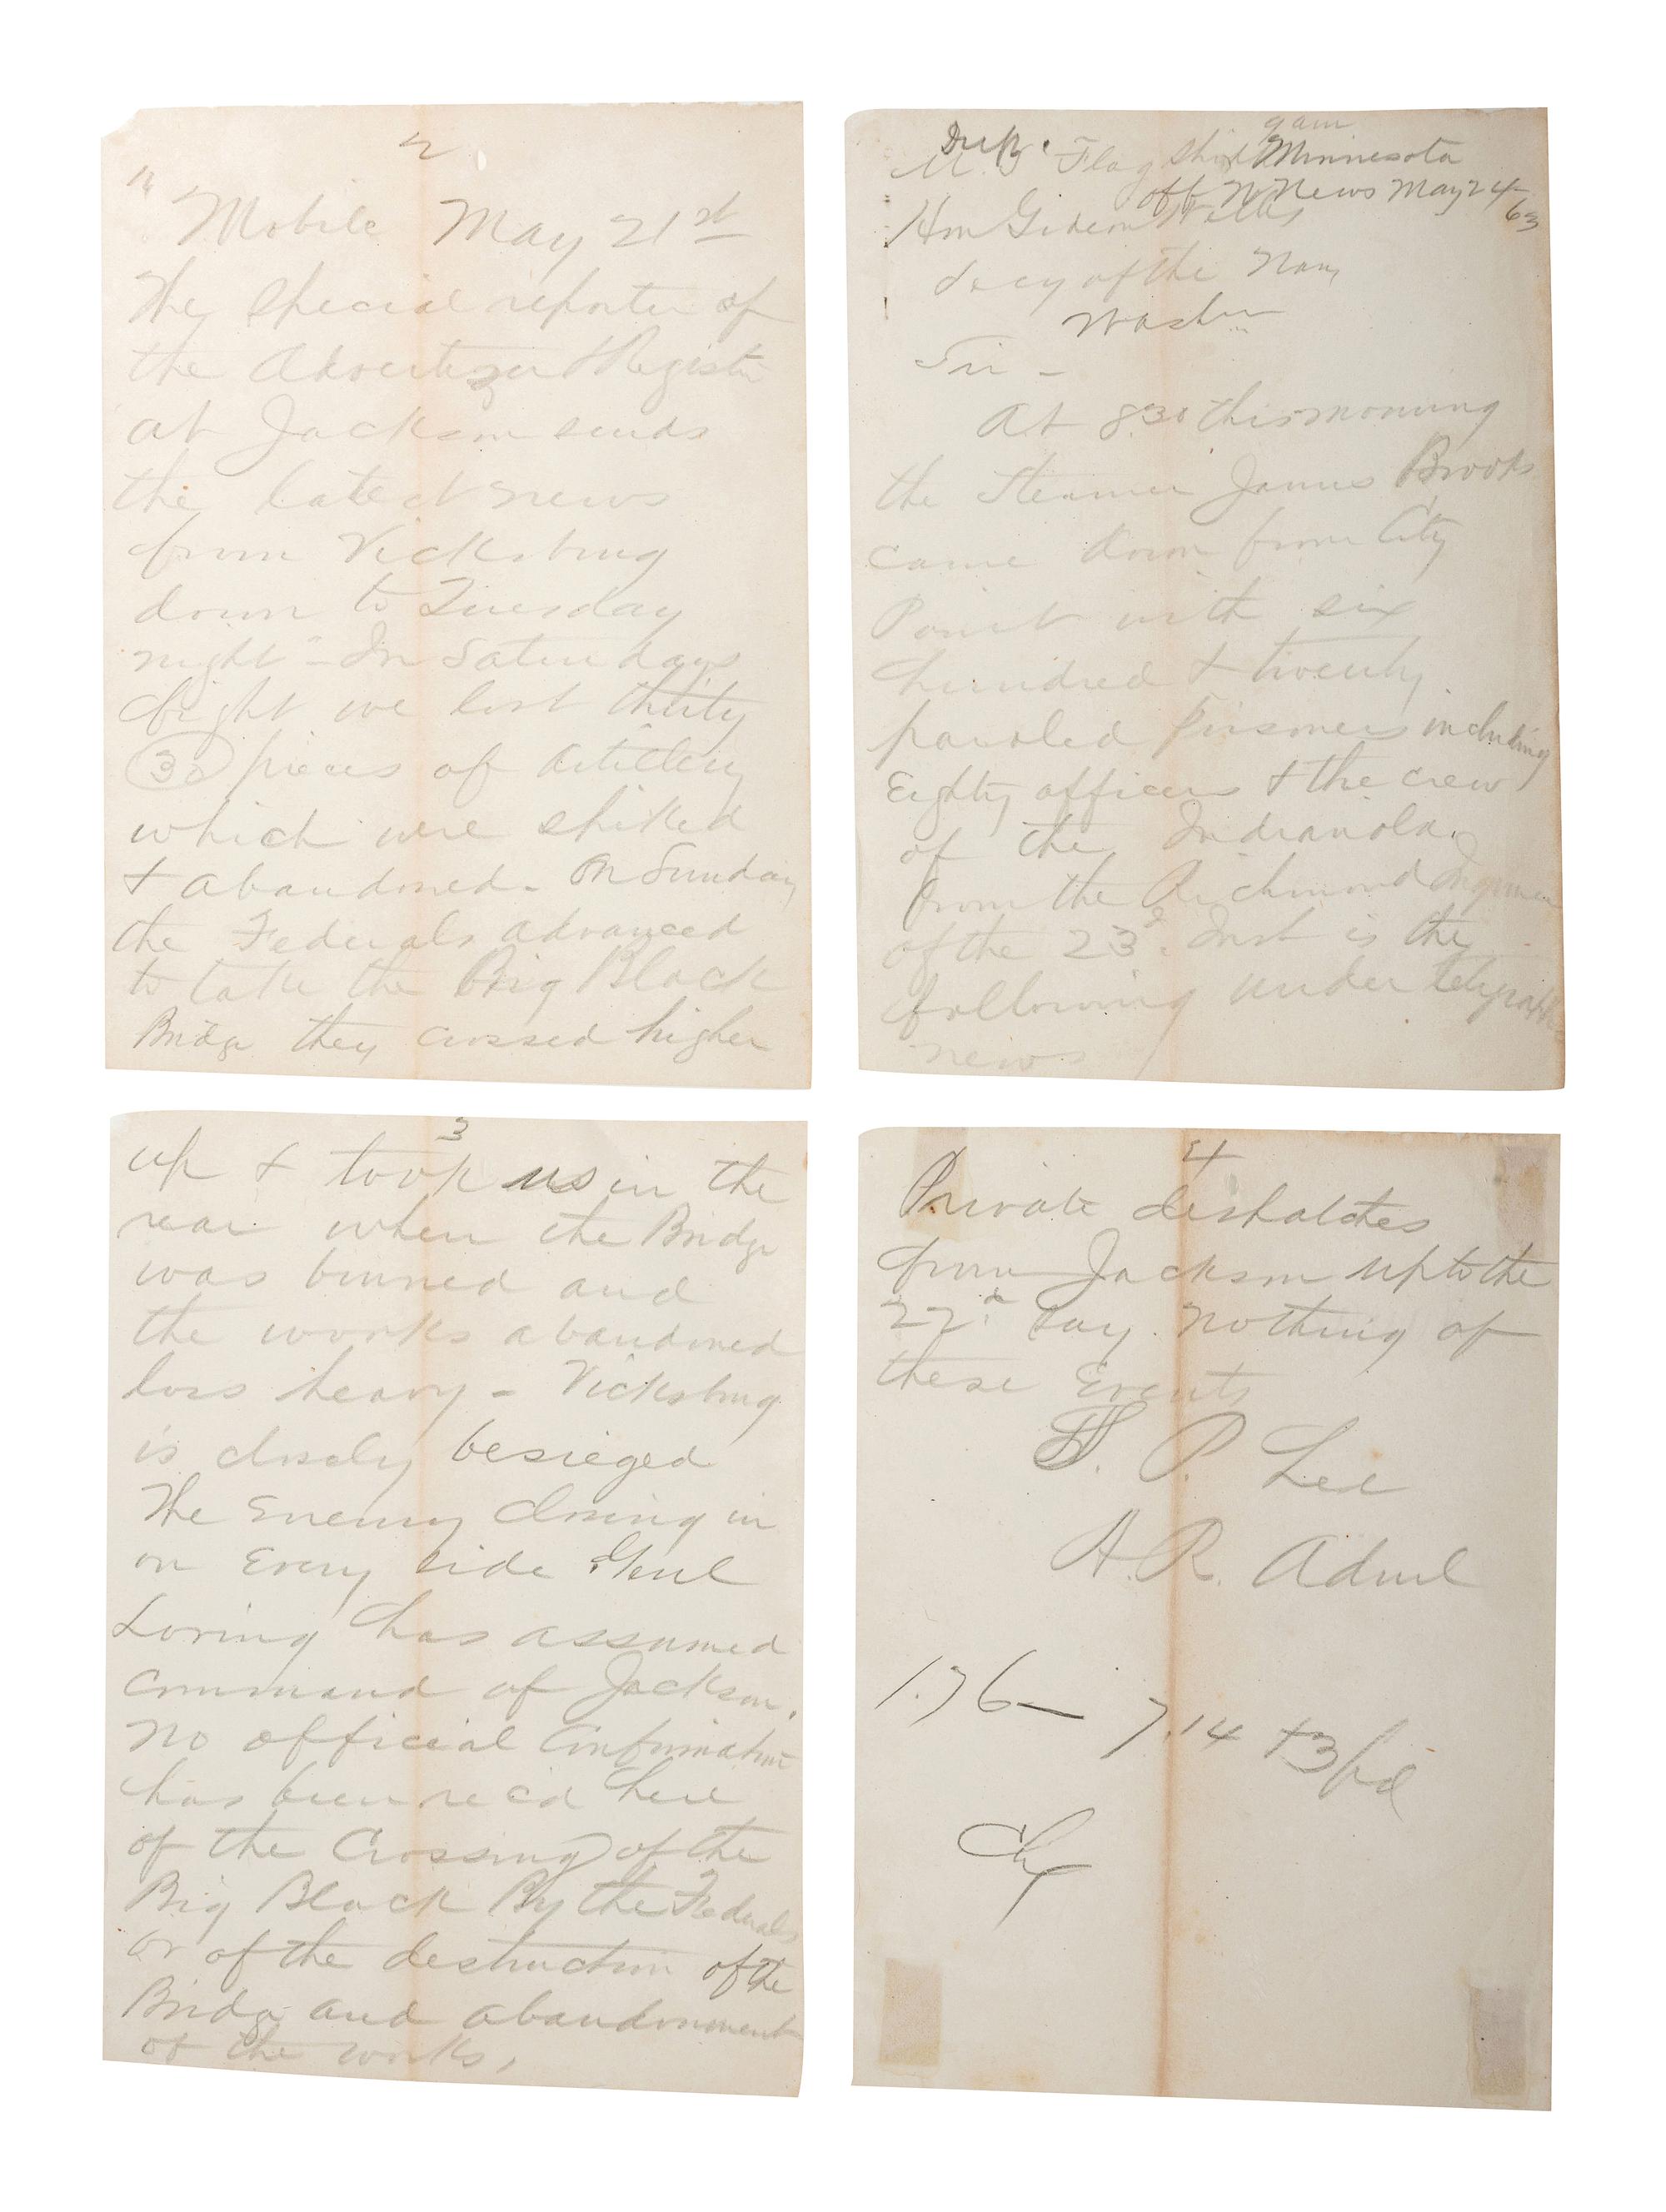 Dup.
9 am
U.S Flag Ship Minnesota
off N News May 24
63
Hon Gideon Welles
Secy of the Navy
Washn
Sir -
At 8.30 this morning
the Steamer James Brooks
came down from City
Point with six
hundred & twenty
paroled Prisoners including
Eighty officers & the crew
of the Indianola.
from the Richmond Inquirer
of the 23d. Inst is the
following under telegraphic
news
2
Mobile May 21st
The special reporter of
the Advertizer & Register
at Jackson sends
the latest news
from Vicksburg
down to Tuesday
night - In Saturdays
fight we lost thirty
30 pieces of Artillery
which were spiked
& abandoned - On Sunday
the Federals advanced
to take the Big Black
Bridge they crossed higher
3
up & took us in the
rear when the Bridge
was burned and
the works abandoned
loss heavy - Vicksburg
is closely besieged
The Enemy closing in
on Every side Genl
Loring has assumed
command of Jackson.
No official Confirmation
has been recd here
of the Crossing of the
Big Black By the Federals
or of the destruction of the
Bridge and abandonment
of the works.
4
Private despatches
from Jackson up to the
22d. Say nothing of
these Events
S. P. Lee
A. R. Adml
176 - 7.14 + 3 pd